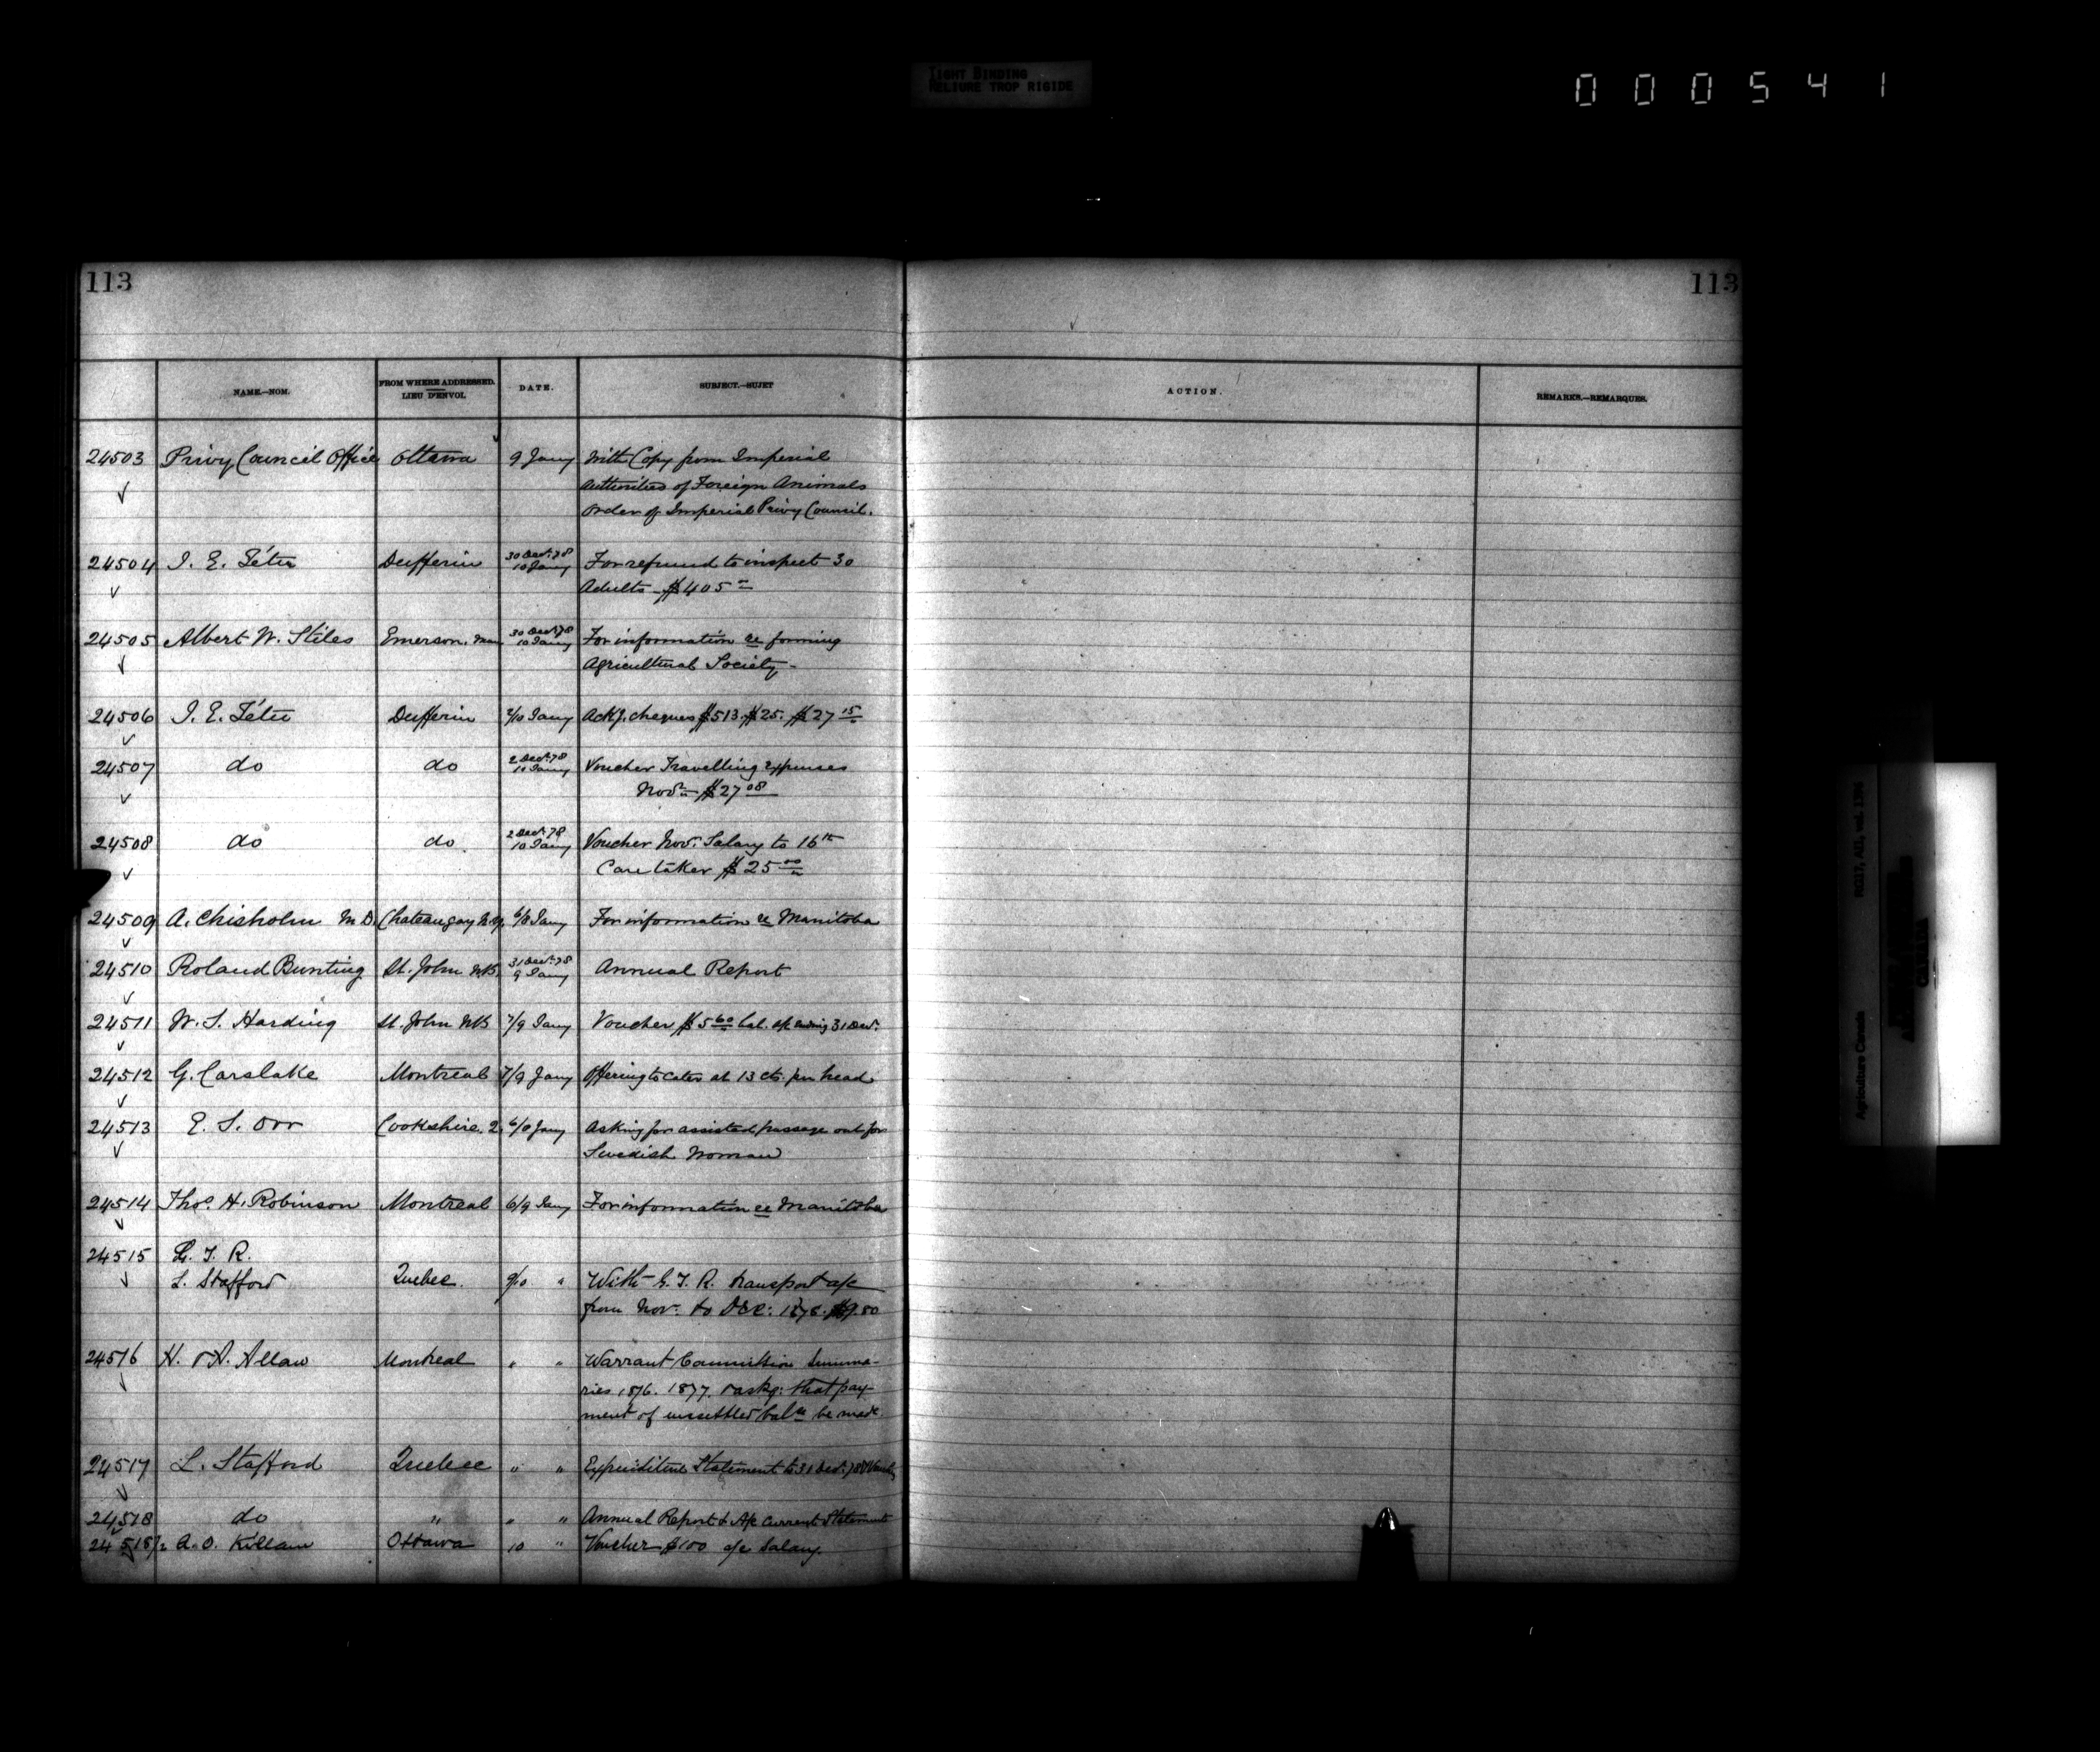 TIGHT BINDING
RELIURE TROP RIGIDE
000541
113
113
NAME.—NOM.
FROM WHERE ADDRESSED.
LIEU D'ENVOI.
DATE.
SUBJECT.—SUJET
ACTION.
REMARKS.—REMARQUES.
24503 Privy Council Office Ottawa 9 Jany With Copy from Imperial
Authorities of Foreign Animals
Order of Imperial Privy Council.
24504 J. E. Têtu Dufferin 30 Decr 78 10 Jany For refund to inspect 30
Adults $405
24505 Albert W. Stiles Emerson, Man 30 Decr 78 10 Jany For information re forming
Agricultural Society
24506 J. E. Têtu Dufferin 2/10 Jany Ackg. cheques $513. $25. $27 15
24507 do do 2 Decr 78 10 Jany Voucher Travelling expenses
Novr $27 08
24508 do do 2 Decr 78 10 Jany Voucher Nov: Salary to 16th
Care taker $25 00
24509 A. Chisholm M.D. Chateaugay N.Y. 6/8 Jany For information re Manitoba
24510 Roland Bunting St. John N.B. 31 Decr 78 9 Jany Annual Report
24511 W. S. Harding St. John NB 7/9 Jany Voucher $5 60 bal. a/c ending 31 Decr
24512 G. Carslake Montreal 7/9 Jany Offering to cater at 13 cts. per head
24513 E. S. Orr Cookshire. Q. 6/8 Jany Asking for assisted passage out for
Swedish Woman
24514 Thos. H. Robinson Montreal 6/9 Jany For information re Manitoba
24515 G. T. R.
L. Stafford Quebec 9/10 " With G. T. R. transport a/c
from Nov: to Dec: 1878. $9.80
24516 H. & A. Allan Montreal " " Warrant Commission Summa-
ries 1876. 1877. & askg: that pay-
ment of unsettled balce be made.
24517 L. Stafford Quebec " " Expenditure Statement to 31 Decr 78
24518 do " " " Annual Report & A/c Current Statement
24518 1/2 A. O. Killam Ottawa 10 " Voucher $100 a/c Salary.
RG17, AII, vol.
Agriculture Canada
CANADA